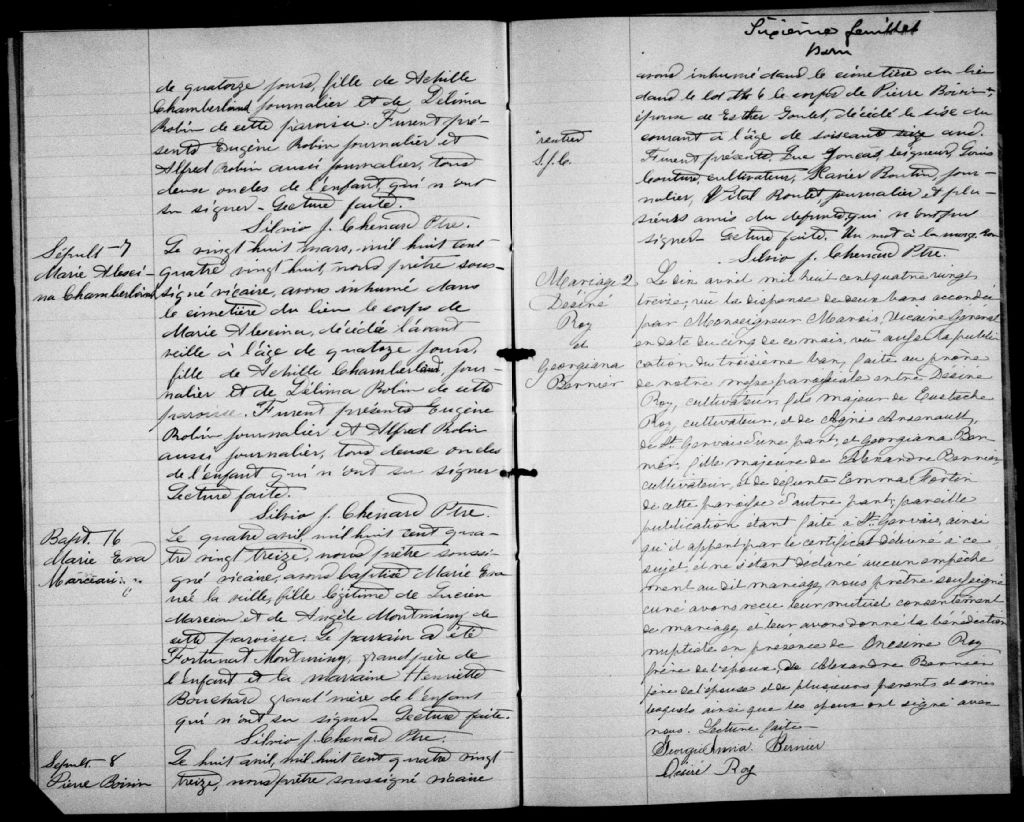 de quatorze jours, fille de Achille
Chamberland journalier et de Délima
Robin de cette paroisse. Furent pré-
sents Eugène Robin journalier et
Alfred Robin aussi journalier, tous
deux oncles de l'enfant, qui n'ont
su signer. Lecture faite.
Silvio J. Chenard Ptre.
Sépult - 7
Marie Alexi-
na Chamberland
Le vingt huit mars, mil huit cent
quatre vingt huit, nous prêtre sous-
signé vicaire, avons inhumé dans
le cimetière du lieu le corps de
Marie Alexina, décédée l'avant
veille à l'âge de quatoze jours,
fille de Achille Chamberland, jour-
nalier et de Délima Robin de cette
paroisse. Furent présents Eugène
Robin journalier et Alfred Robin
aussi journalier, tous deux oncles
de l'enfant qui n'ont su signer
Lecture faite.
Silvio J. Chenard Ptre.
Bapt. 16
Marie Eva
Marceau
Le quatre avril, mil huit cent qua-
tre vingt treize, nous prêtre soussi-
gné vicaire, avons baptisé Marie Eva
née la veille, fille légitime de Lucien
Marceau et de Angèle Montminy de
cette paroisse. Le parrain a été
Fortunat Montminy, grand père de
l'enfant et la marraine Henriette
Bouchard grand'mère de l'enfant
qui n'ont su signer. Lecture faite.
Silvio J. Chenard Ptre.
Sépult. 8
Pierre Boivin
Le huit avril, mil huit cent quatre vingt
treize, nous prêtre soussigné vicaire
Sixième feuillet
avons inhumé dans le cimetière du lieu
dans le lot No 6 le corps de Pierre Boivin
époux de Esther Goulet, décédé le six du
courant à l'âge de soixante seize ans.
Furent présents, Luc Joncas, Seigneur, Louis
Couture, cultivateur, Xavier Boutin, jour-
nalier, Vital Roulet, journalier et plu-
sieurs amis du defunt, qui n'ont su
signer. Lecture faite. Un mot à la marge bon
Silvio J. Chenard Ptre.
rentier
S.J.C.
Mariage 2
Désiré
Roy
et
Georgiana
Bernier
Le dix avril mil huit cent quatre vingt
treize, vu la dispense de deux bans accordée
par Monseigneur Marois, Vicaire General
en date du cinq de ce mois, vu aussi la publi
cation du troisième ban, faite au prône
de notre messe paroissiale entre Désiré
Roy, cultivateur, fils majeur de Eustache
Roy, cultivateur, et de Agnès Arsenault,
de St Gervais d'une part, et Georgiana Ber-
nier, fille majeure de Alexandre Bernier,
cultivateur, et de defunte Emma Fortin
de cette paroisse d'autre part; pareille
publication étant faite à St. Gervais, ainsi
qu'il appert par le certificat delivré à ce
sujet, et ne s'étant déclaré aucun empêche
ment au dit mariage, nous prêtre soussigné
curé avons reçu leur mutuel consentement
de mariage, et leur avons donné la bénédiction
nuptiale en présence de Onesime Roy
frère de l'époux, de Alexandre Bernier
père de l'épouse et de plusieurs parents et amis
lesquels ainsi que les époux ont signé avec
nous. Lecture faite
Georgie Anna Bernier
Désiré Roy